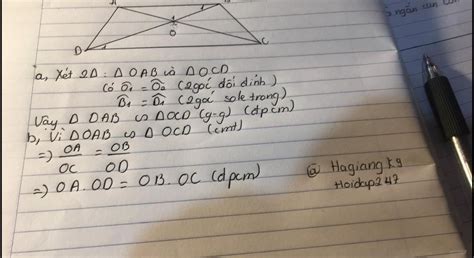 D
C
O
a, Xét 2Δ: ΔOAB và ΔOCD
có Ô₁ = Ô₂ (2 góc đối đỉnh)
B̂₁ = D̂₁ (2 góc sole trong)
Vậy Δ OAB ∽ ΔOCD (g-g) (đpcm)
b, Vì ΔOAB ∽ Δ OCD (cmt)
=) OA/OC = OB/OD
=) OA.OD = OB.OC (đpcm)
@ Hagiangk9
Hoidap247